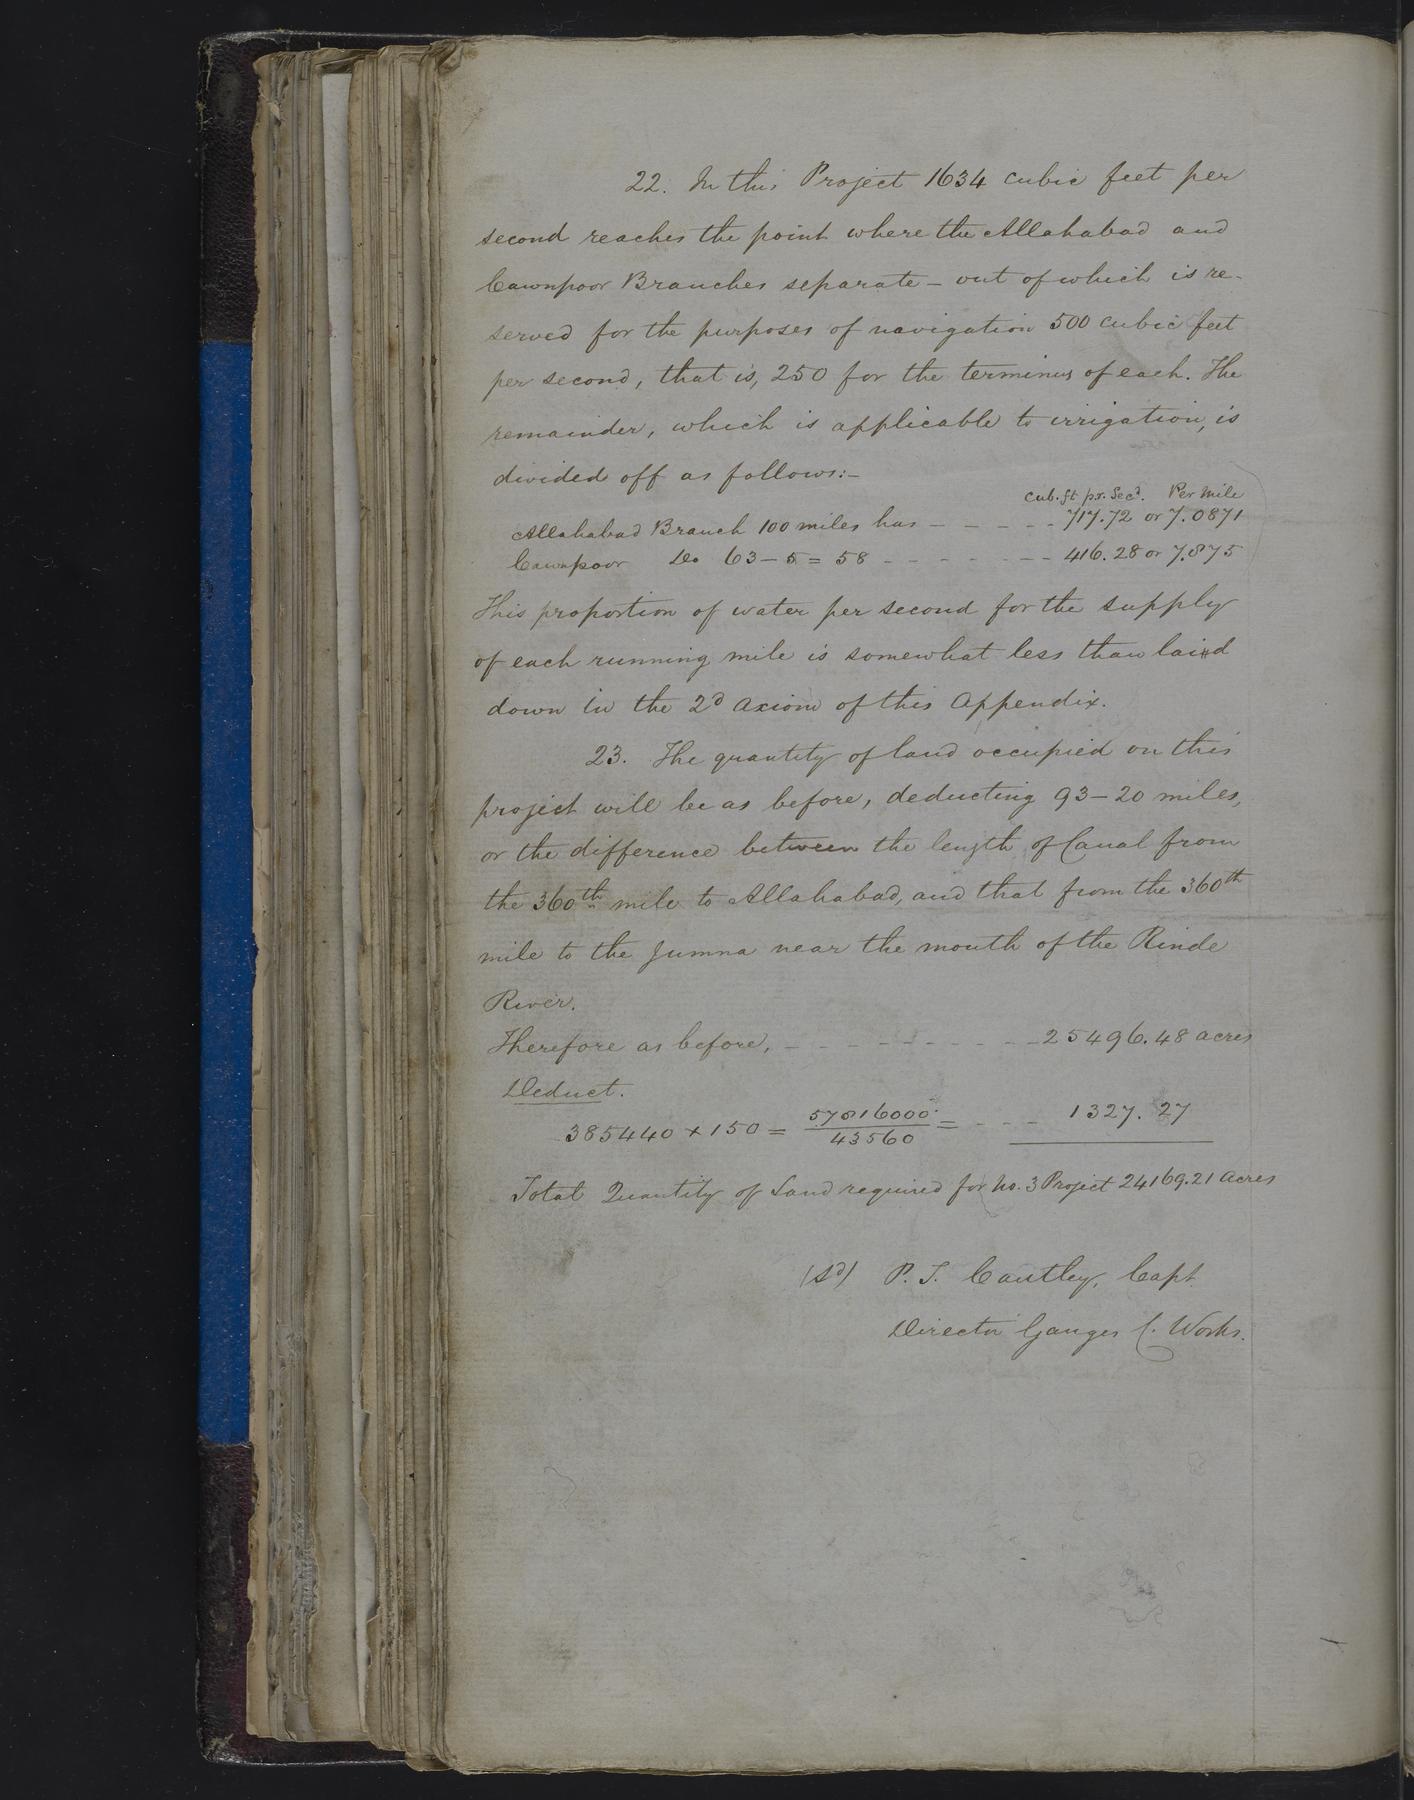 22. In this Project 1634 cubic feet per
second reaches the point where the Allahabad and
Cawnpoor Branches separate – out of which is re-
served for the purposes of navigation 500 cubic feet
per second, that is, 250 for the terminus of each. The
remainder, which is applicable to irrigation, is
divided off as follows:–
Cub. ft pr. Secd. Per Mile
Allahabad Branch 100 miles has – – – – – 717.72 or 7.0871
Cawnpoor Do 63 – 5 = 58 – – – – – – – 416.28 or 7.875
This proportion of water per second for the supply
of each running mile is somewhat less than laid
down in the 2d axiom of this Appendix.
23. The quantity of land occupied on this
project will be as before, deducting 93–20 miles,
or the difference between the length of Canal from
the 360th mile to Allahabad, and that from the 360th
mile to the Jumna near the mouth of the Rinde
River.
Therefore as before, – – – – – – – – – 25496.48 acres
Deduct.
385440 × 150 = 57816000 / 43560 = – – – 1327.27
Total Quantity of Land required for No. 3 Project 24169.21 acres
(Sd) P. T. Cautley, Capt.
Director Ganges C. Works.